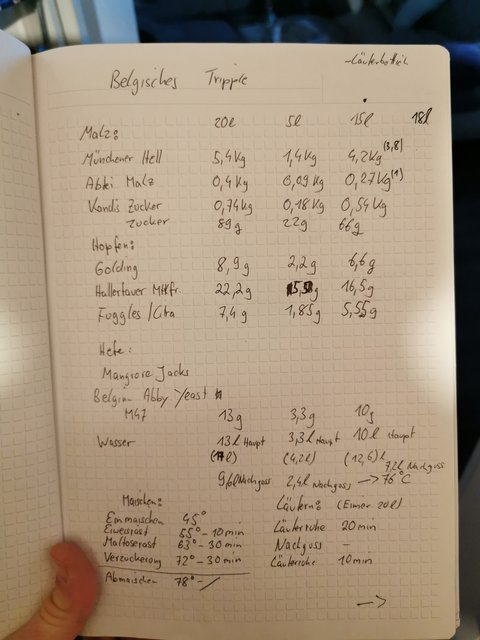 -Läuterbottich
Belgisches Tripple
20l 5l 15l 18l
Malz:
Münchener Hell 5,4kg 1,4kg 4,2kg (3,8)
Abtei Malz 0,4kg 0,09kg 0,27kg (1)
Kandis Zucker 0,74kg 0,18kg 0,54kg
Zucker 89g 22g 66g
Hopfen:
Golding 8,9g 2,2g 6,6g
Hallertauer Mttfr. 22,2g 5,5g 16,5g
Fuggles/Citra 7,4g 1,85g 5,55g
Hefe:
Mangrove Jacks
Belgian Abby Yeast
M47 13g 3,3g 10g
Wasser 13l Haupt 3,3l Haupt 10l Haupt
(17l) (4,2l) (12,6)l
9,6l Nachguss 2,4l Nachguss 7,2l Nachguss
-> 76°C
Maischen: Läutern: (Eimer 20l)
Einmaischen 45° Läuterruhe 20min
Eiweisrast 55° - 10min Nachguss -
Maltoserast 63° - 30min Läuterruhe 10min
Verzuckerung 72° - 30min
Abmaischen 78° - /
->